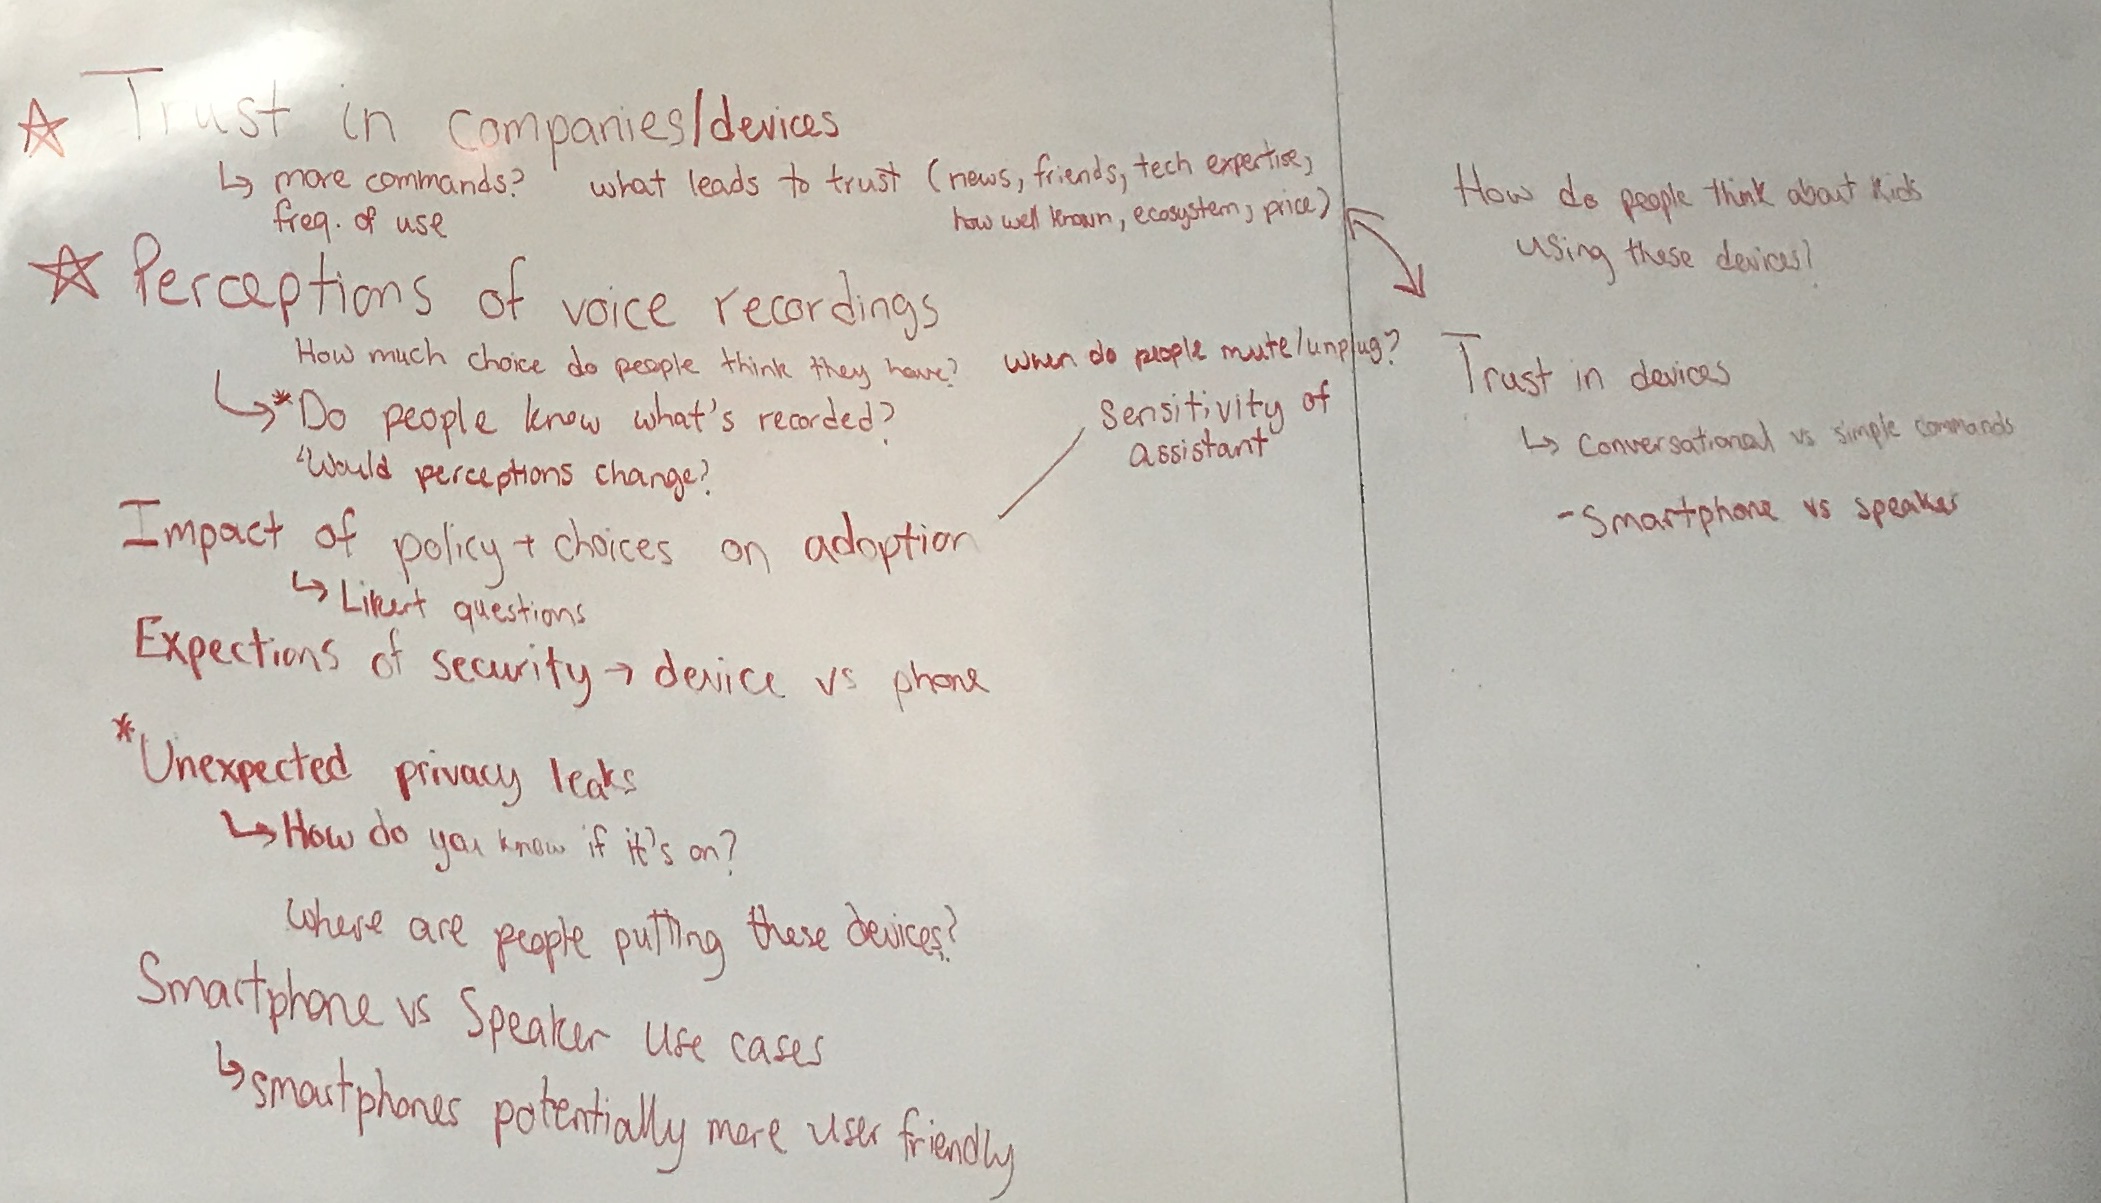 ☆ Trust in companies/devices
↳ more commands? what leads to trust (news, friends, tech expertise,
freq. of use how well known, ecosystem, price)
☆ Perceptions of voice recordings
How much choice do people think they have? when do people mute/unplug?
↳ *Do people know what's recorded?
"Would perceptions change?
Sensitivity of
assistant
Impact of policy + choices on adoption
↳ Likert questions
Expections of security → device vs phone
*Unexpected privacy leaks
↳ How do you know if it's on?
Where are people putting these devices?
Smartphone vs Speaker use cases
↳ smartphones potentially more user friendly
How do people think about kids
using these devices?
Trust in devices
↳ Conversational vs simple commands
- Smartphone vs speaker